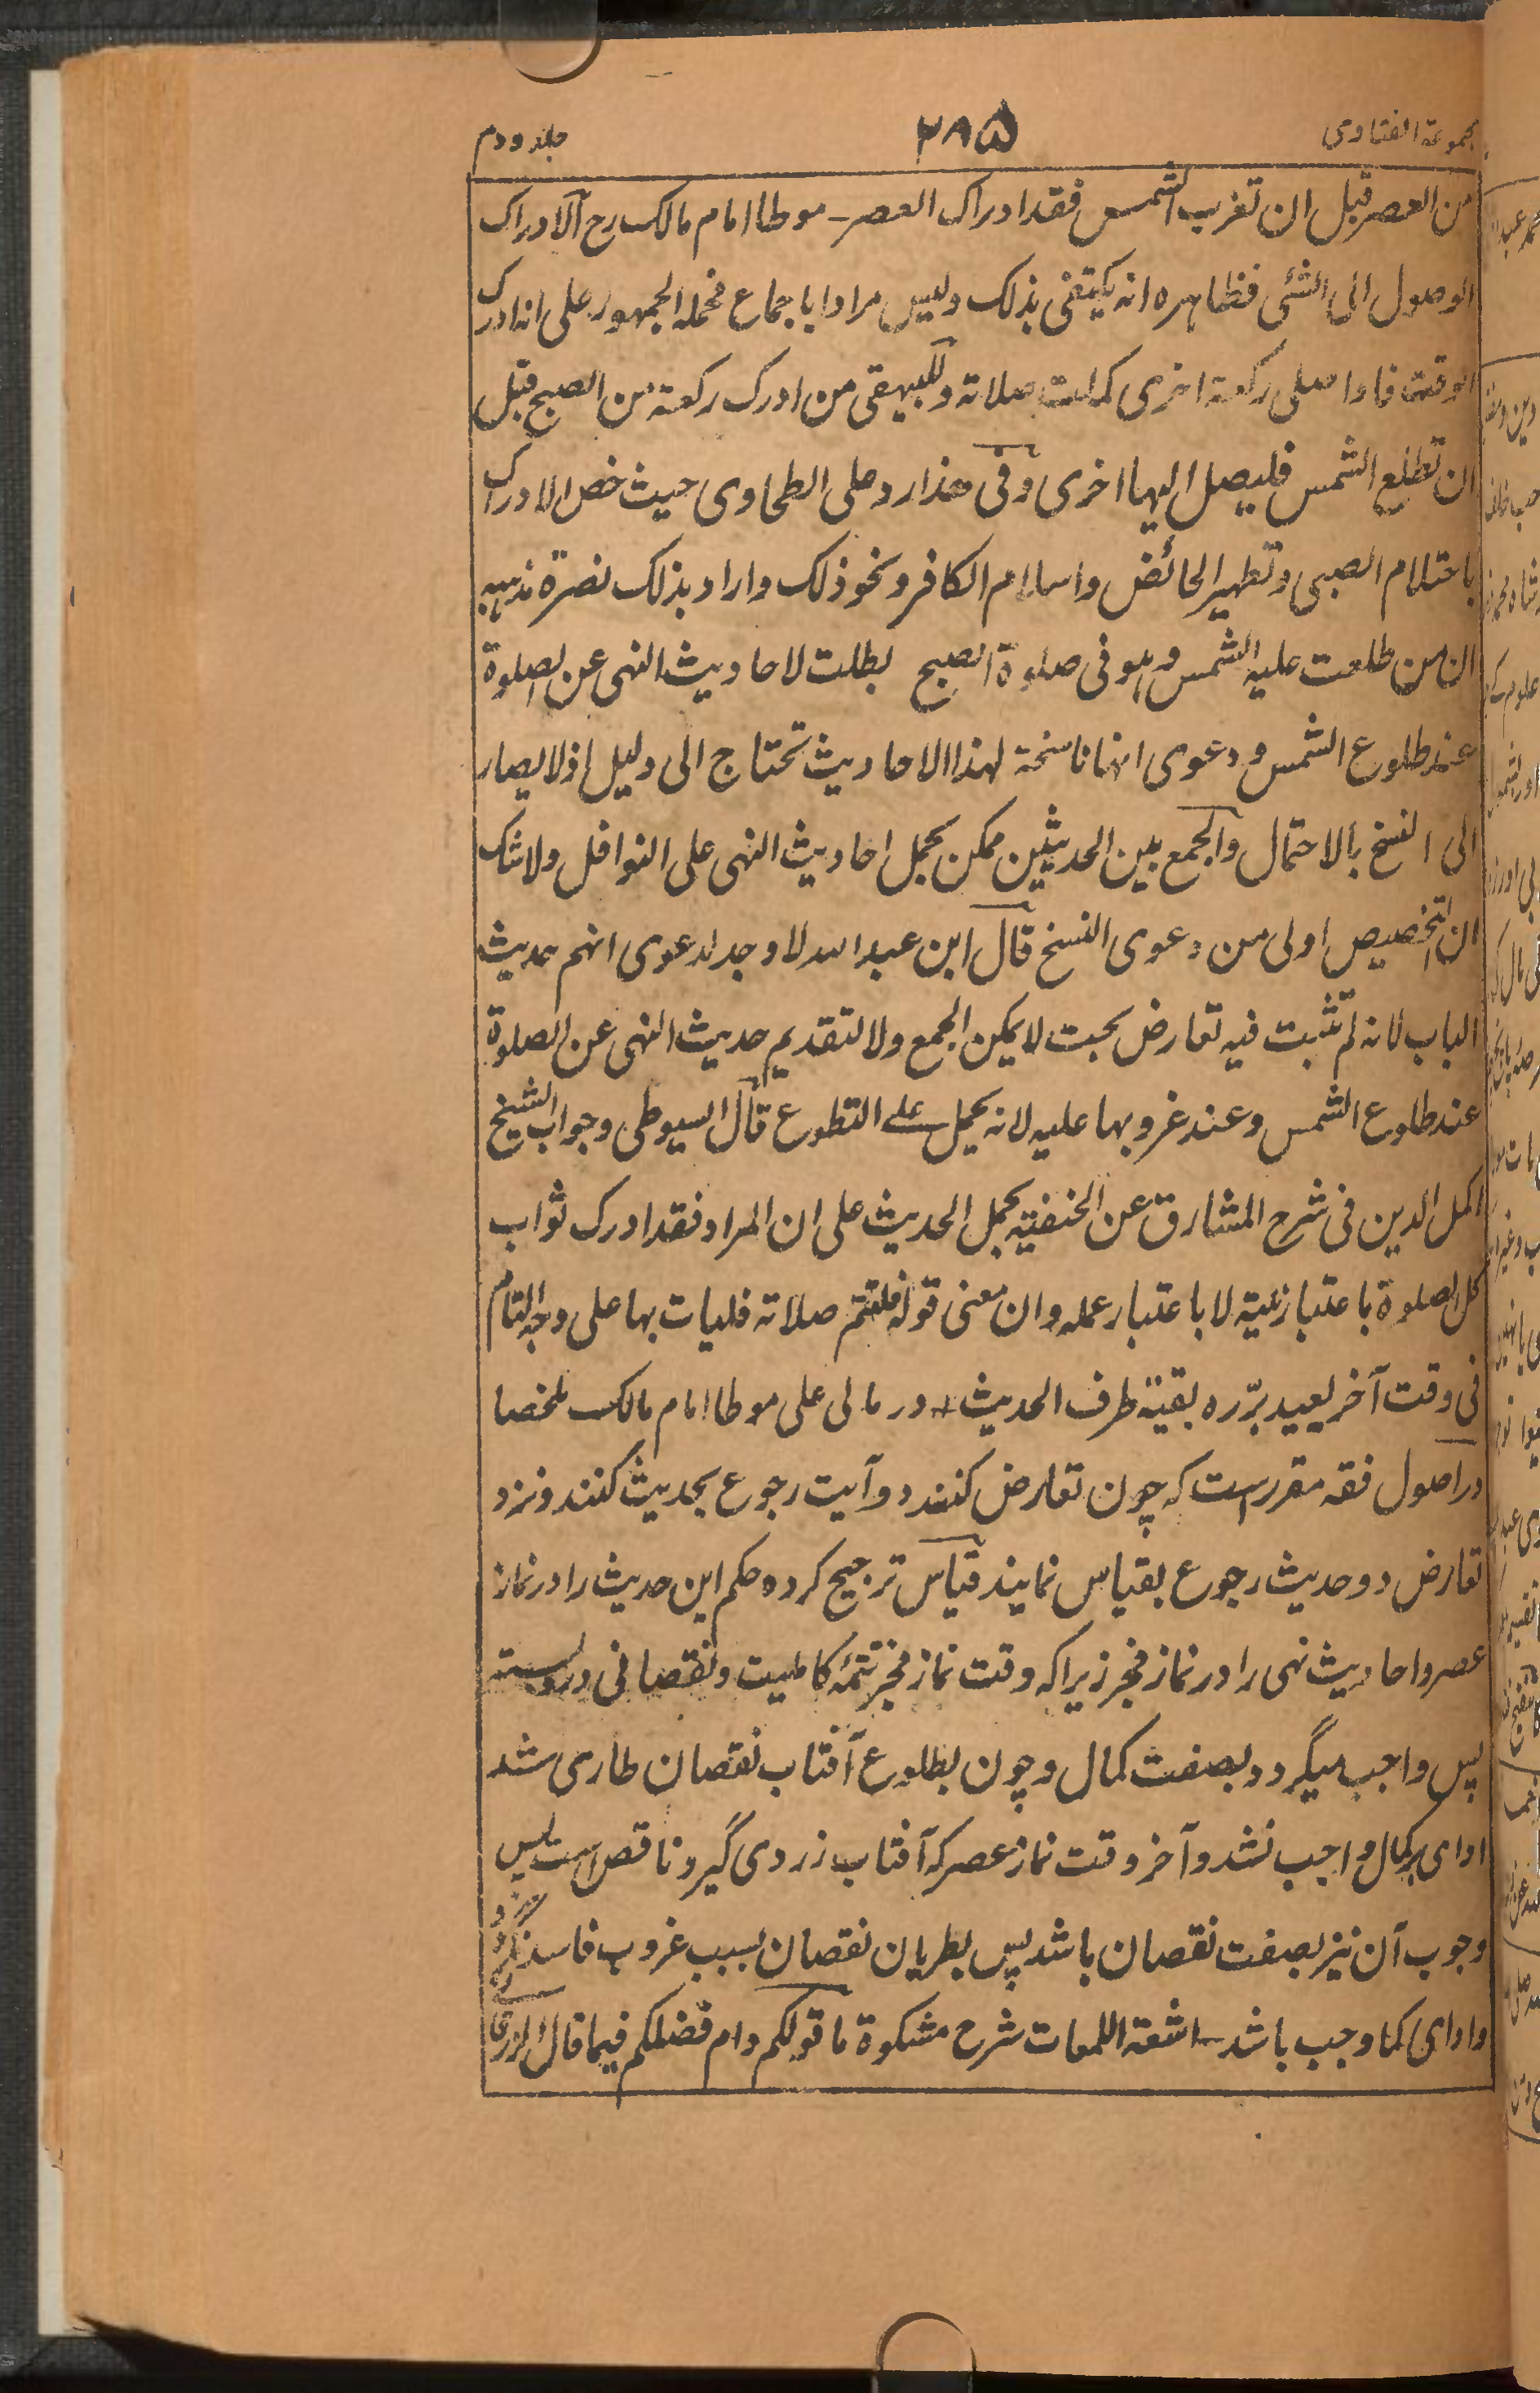 مجموعة الفتاوى
۲۸۵
جلد دوم
من العصر قبل ان تغرب الشمس فقد ادراك العصر۔ موطا امام مالک رح الادراک
الوصول الى الشئی فظاہرہ انہ یکتفی بذلک ولیس مرادا باجماع فحملہ الجمہور علی انہ ادرک
الوقت فاذا صلی رکعۃ اخری کملت صلاتہ وللبیہقی من ادرک رکعۃ من الصبح قبل
ان تطلع الشمس فلیصل الیہا اخری وفی ھذا رد علی الطحاوی حیث خص الادراک
باحتلام الصبی وتطہیر الحائض واسلام الکافر ونحو ذلک واراد بذلک نصرۃ مذہبہ
ان من طلعت علیہ الشمس وہو فی صلوۃ الصبح بطلت لاحادیث النہی عن الصلوۃ
عند طلوع الشمس ودعوی انہا ناسخۃ لہذا الاحادیث تحتاج الی دلیل اذ لا یصار
الی النسخ بالاحتمال والجمع بین الحدیثین ممکن بحمل احادیث النہی علی النوافل ولا شک
ان التخصیص اولی من دعوی النسخ قال ابن عبد اللہ لا وجہ لدعوی انہم حدیث
الباب لانہ لم تثبت فیہ تعارض بحیث لا یمکن الجمع ولا لتقدیم حدیث النہی عن الصلوۃ
عند طلوع الشمس وعند غروبہا علیہ لانہ یحمل علے التطوع قال السیوطی وجواب الشیخ
اکمل الدین فی شرح المشارق عن الحنفیۃ بحمل الحدیث علی ان المراد فقد ادرک ثواب
کل الصلوۃ باعتبار نیتہ لا باعتبار عملہ وان معنی قولہ فلیتم صلاتہ فلیات بہا علی وجہ التمام
فی وقت آخر بعید یرّدہ بقیۃ طرف الحدیث در مالی علی موطا امام مالک ملخصا
در اصول فقہ مقررست کہ چون تعارض کنند دو آیت رجوع بحدیث کنند ونزد
تعارض دو حدیث رجوع بقیاس نمایند قیاس ترجیح کردہ حکم این حدیث را در نماز
عصر واحادیث نہی را در نماز فجر زیراکہ وقت نماز فجر تتمہ کاملیت ونقصانی درو نیست
پس واجب میگردد بصفت کمال وچون بطلوع آفتاب نقصان طاری شد
ادای بر کمال واجب نشد وآخر وقت نماز عصر کہ آفتاب زردی گیرد ناقص است پس
وجوب آن نیز بصفت نقصان باشد پس بطریان نقصان بسبب غروب فاسد نگردد
وادای کما وجب باشد۔ اشعۃ اللمعات شرح مشکوۃ ما قولکم دام فضلکم فیما قال